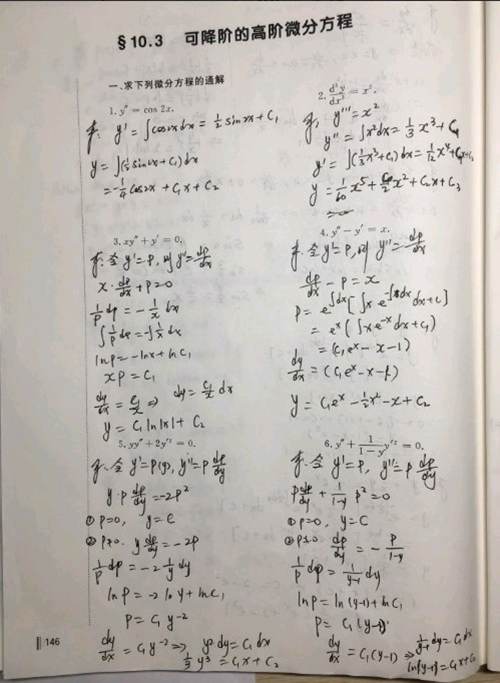 §10.3 可降阶的高阶微分方程
一、求下列微分方程的通解
1. y″ = cos 2x.
解: y' = ∫cos2xdx = ½ sin2x + C₁
y = ∫(½ sin2x + C₁)dx
= -¼ cos2x + C₁x + C₂
2. d³y/dx³ = x².
解, y''' = x²
y'' = ∫x²dx = ⅓ x³ + C₁
y' = ∫(⅓x³ + C₁)dx = 1/12 x⁴ + C₁x + C₂
y = 1/60 x⁵ + C₁/2 x² + C₂x + C₃
3. xy″ + y′ = 0.
解: 令 y' = P, 则 y'' = dp/dx
x · dp/dx + P = 0
1/p dp = -1/x dx
∫1/p dp = -∫1/x dx
lnp = -lnx + lnC₁
xp = C₁
dy/dx = C₁/x ⇒ dy = C₁/x dx
y = C₁ ln|x| + C₂
4. y″ - y′ = x.
解. 令 y' = P, 则 y'' = dp/dx
dp/dx - P = x
P = e^∫dx [∫x e^-∫dx dx + C₁]
= eˣ (∫x e⁻ˣ dx + C₁)
= (C₁eˣ - x - 1)
dy/dx = (C₁eˣ - x - 1)
y = C₁eˣ - ½x² - x + C₂
5. yy″ + 2y′² = 0.
解. 令 y' = P(y), y'' = P dp/dy
y · P dp/dy = -2P²
① P=0, y = C
② P≠0. y dp/dy = -2P
1/p dp = -2 1/y dy
lnp = -2lny + lnC₁
P = C₁ y⁻²
dy/dx = C₁ y⁻² ⇒ y² dy = C₁dx
⅓ y³ = C₁x + C₂
6. y″ + 1/(1-y) y′² = 0.
解. 令 y' = P, y'' = P dp/dy
P dp/dy + 1/(1-y) P² = 0
① P=0, y = C
② P≠0 dp/dy = - P/(1-y)
1/p dp = 1/(y-1) dy
lnp = ln(y-1) + lnC₁
P = C₁(y-1)
dy/dx = C₁(y-1) ⇒ 1/(y-1) dy = C₁dx
ln|y-1| = C₁x + C₂
146